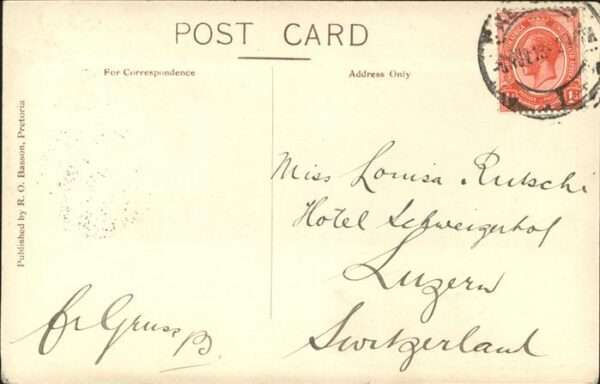 POST CARD
For Correspondence
Address Only
Published by R. O. Basson, Pretoria
Miss Louisa Rutschi
Hotel Schweigerhof
Luzern
Switzerland
Gruss
B.